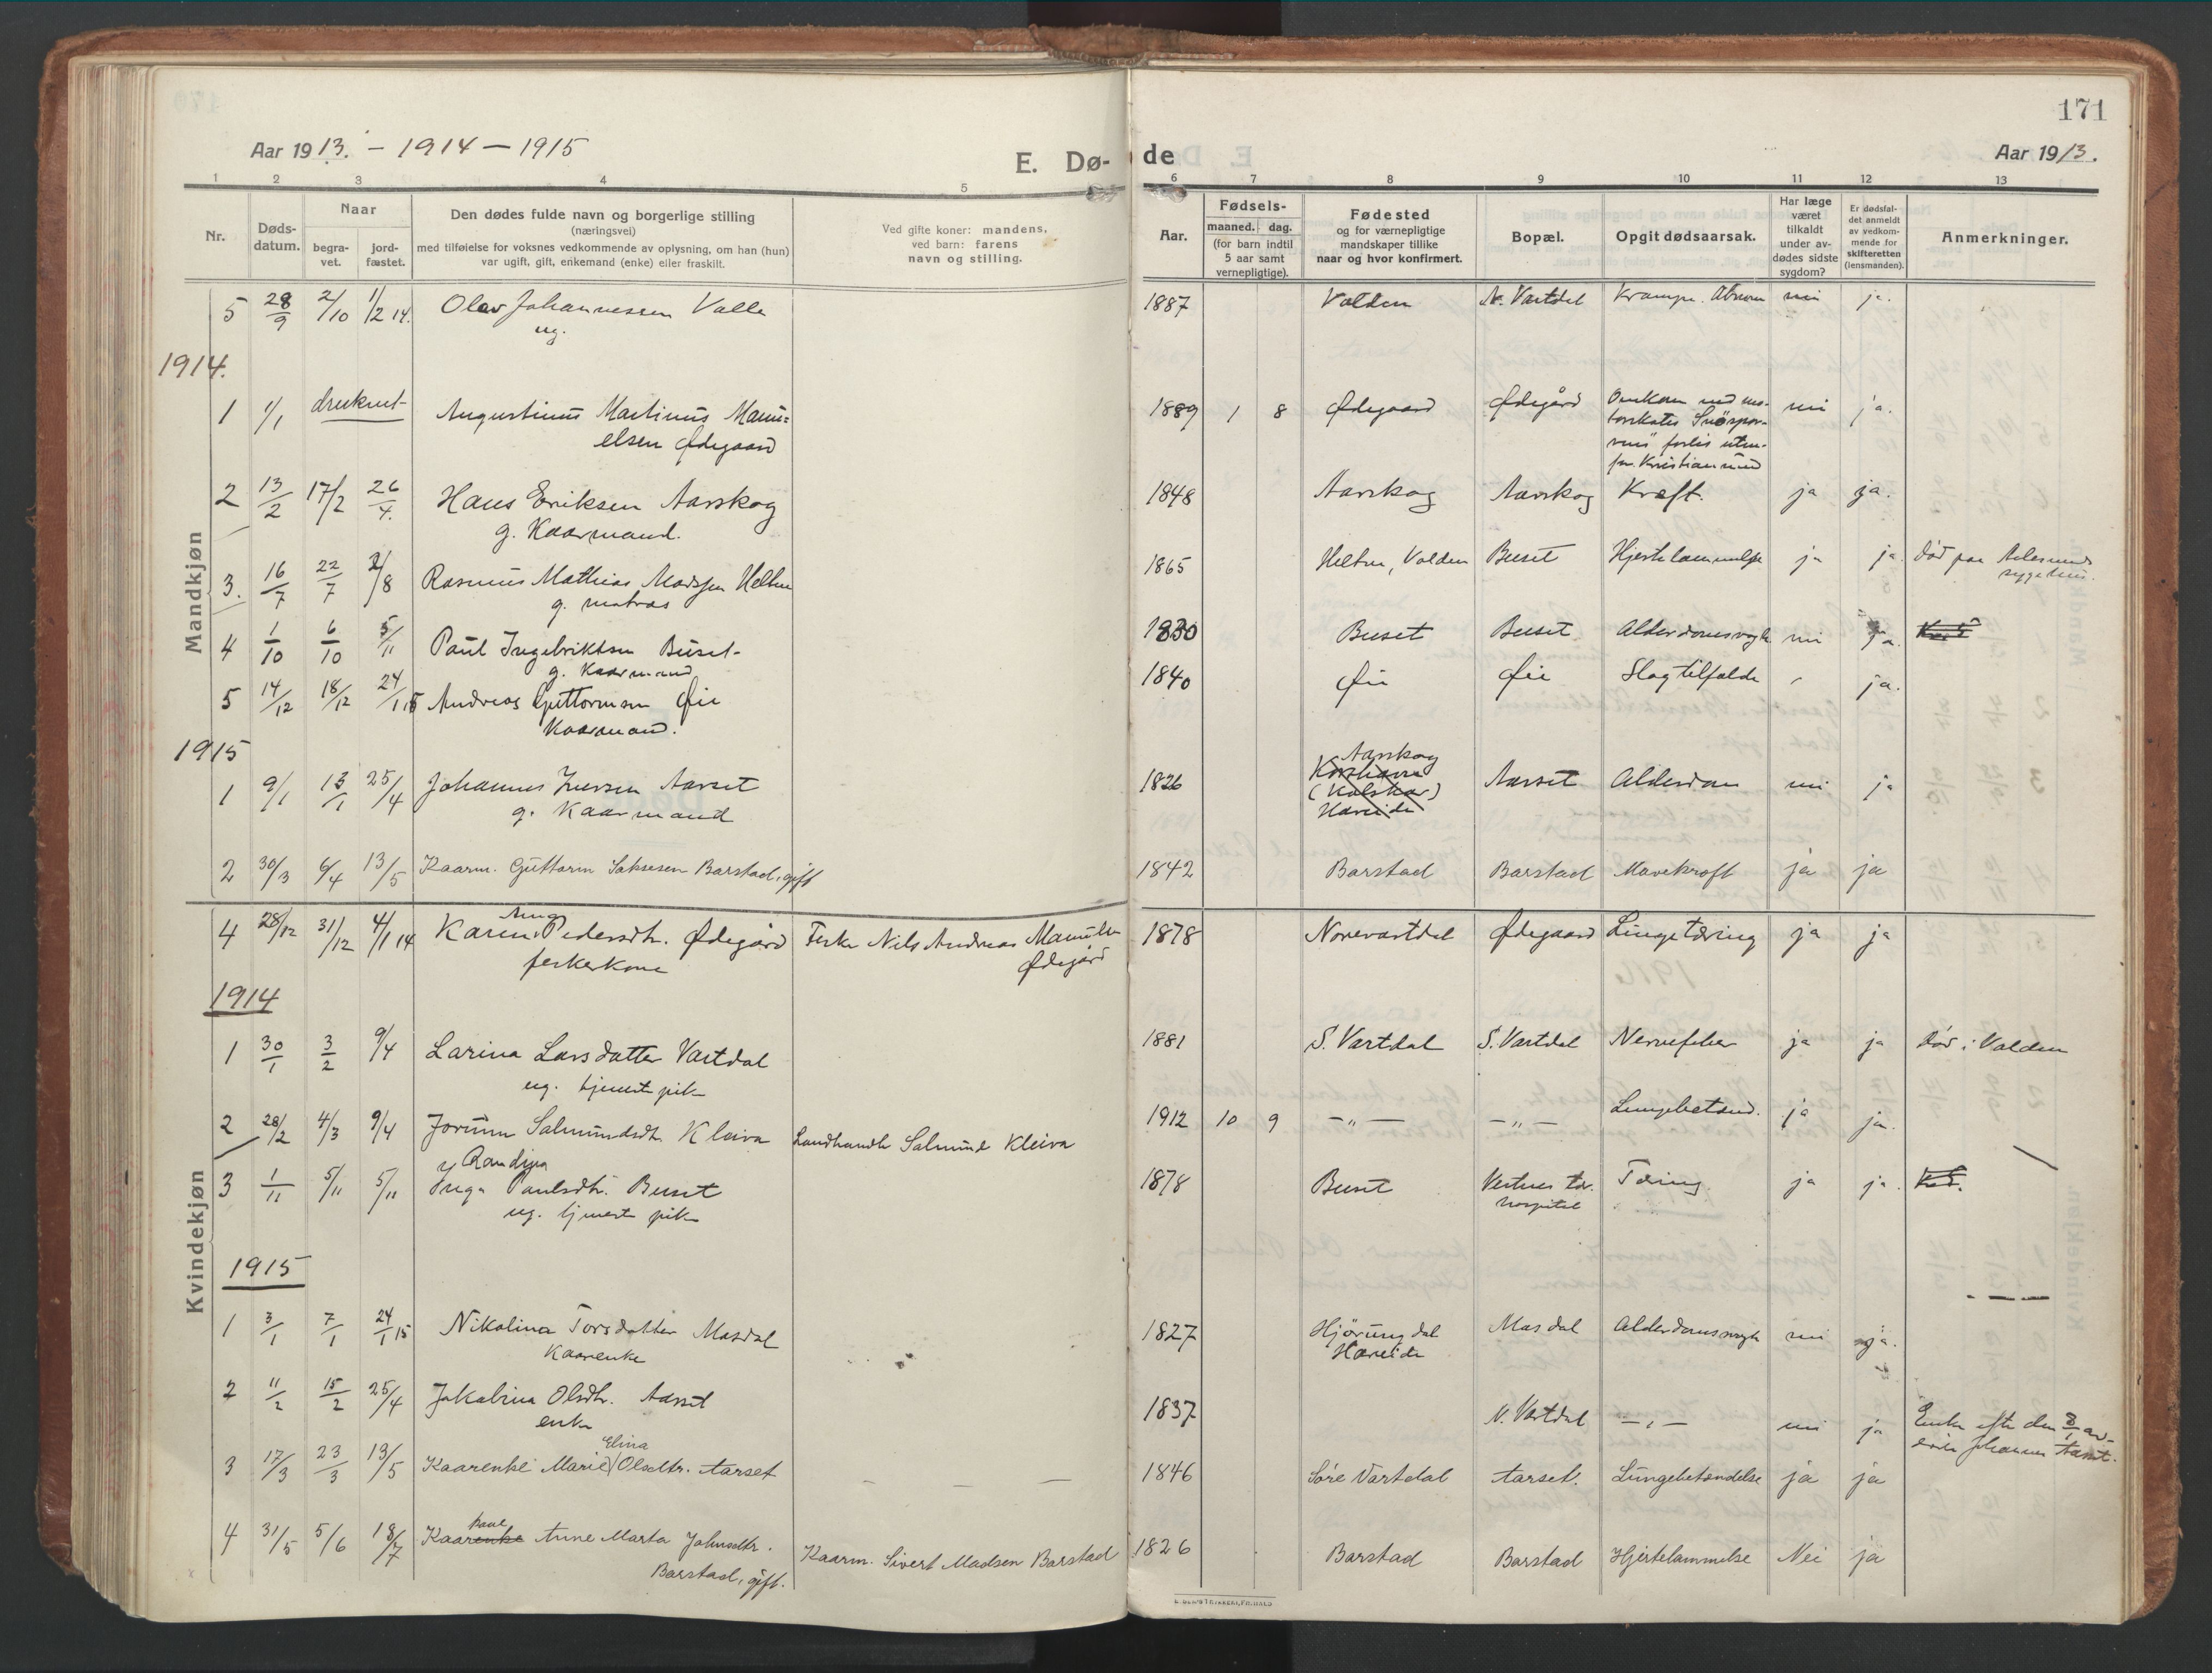 171
Aar 1913. – 1914 – 1915
E. Dø-
de
Aar 1913.
1 2 3 4 5 6 7 8 9 10 11 12 13
Nr.
Døds-
datum.
Naar
begra-
vet.
jord-
fæstet.
Den dødes fulde navn og borgerlige stilling
(næringsvei)
med tilføielse for voksnes vedkommende av oplysning, om han (hun)
var ugift, gift, enkemand (enke) eller fraskilt.
Ved gifte koner: mandens,
ved barn: farens
navn og stilling.
Aar.
Fødsels-
maaned. dag.
(for barn indtil
5 aar samt
vernepligtige).
Fødested
og for værnepligtige
mandskaper tillike
naar og hvor konfirmert.
Bopæl.
Opgit dødsaarsak.
Har læge
været
tilkaldt
under av-
dødes sidste
sygdom?
Er dødsfal-
det anmeldt
av vedkom-
mende for
skifteretten
(lensmanden).
Anmerkninger.
Mandkjøn
5 28/9 2/10 1/2 14. Olav Johannessen Valle 1887 Volden N. Vartdal Krampe. nei ja.
ug.
1914.
1 1/1 druknet Augustinus Martinus Manu= 1889 1 8 Ødegaard Ødegård Omkom ved mo- nei ja.
elsen Ødegaard
torkuter Snöspor-
ven" forlis uten-
for Kristiansund
2 13/2 17/2 26/4. Hans Eriksen Aarskog 1848 Aarskog Aarskog Kræft. ja ja.
g. Kaarmand.
3. 16/7 22/7 2/8 Rasmus Mathias Madssen Heltne 1865 Heltne, Volden Buset Hjertelammelse ja ja. død paa Aalesunds
sygehus.
g. matros
4 1/10 6/10 5/11 Paul Ingebriktsen Buset 1830 Buset Buset Alderdomssvagh nei ja.
g. Kaarmand
5 14/12 18/12 24/1 15 Andreas Guttormsen Øie 1840 Øie Øie Slagtilfælde ja.
Kaarmand.
1915
1 9/1 13/1 25/4 Johannes Iversen Aarset 1826 Aarskog Aarset Alderdom nei ja
g. Kaarmand
Hareide
2 30/3 6/4 13/5 Kaarm. Guttorm Saksesen Barstad, gift 1842 Barstad Barstad Mavekræft ja ja
Kvindekjøn
4 28/12 31/12 4/1 14 Karen Anna Pedersdtr. Ødegård Fisker Nils Andreas Manuelsen 1878 Norevartdal Ødegaard Lungetæring ja ja
fiskerkone Ødegård
1914
1 30/1 3/2 9/4 Larina Larsdatter Vartdal 1881 S. Vartdal S. Vartdal Nervefeber ja ja død i Volden
ug. tjenestpik
2 28/2 4/3 9/4 Jorunn Salmundsdtr. Kleiva Landhandler Salmund Kleiva 1912 10 9 –„– –„– Lungebetænd. ja ja.
3 1/11 5/11 5/11 Inga Randina Paulsdtr. Buset 1878 Buset Vestnes tub. Tæring ja ja.
hospital
ug. tjenestpik
1915
1 3/1 7/1 24/1 15 Nikolina Torsdatter Masdal 1827 Hjörungdal Masdal Alderdomssvagh nei ja.
Kaarenke Hareide
2 11/2 15/2 25/4 Jakobina Olsdtr. Aarset 1837 N. Vartdal –„– nei ja Enke efter den 9/1 av-
enke døde Johannes Aarset.
3 17/3 23/3 13/5 Kaarenke Marie Elina Olsdtr. Aarset – – – 1846 Søre Vartdal Aarset. Lungebetændelse ja ja
4 31/5 5/6 18/7 Kaarenke kone Anne Marta Johnsdtr. Kaarm. Sivert Madsen Barstad 1826 Barstad Barstad Hjertelammelse Nei ja
Barstad, gift.